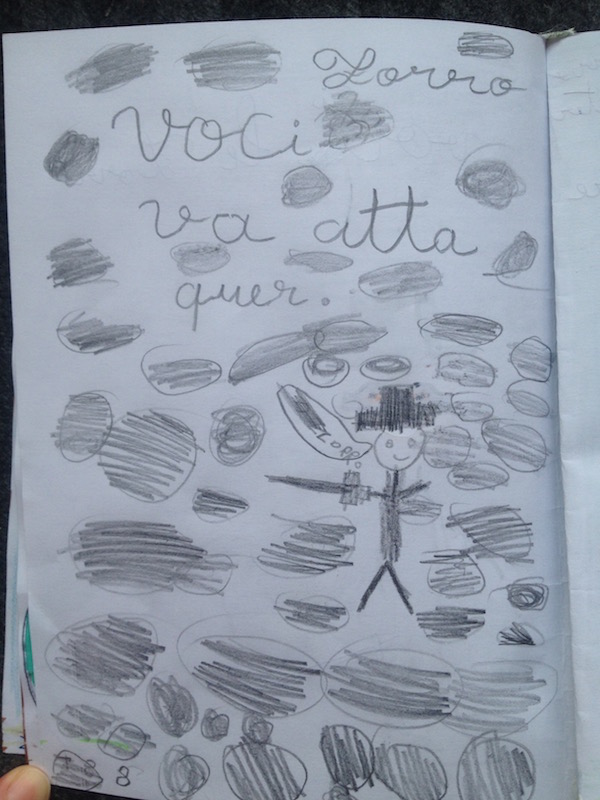 Zorro
voci
va atta
quer.
8